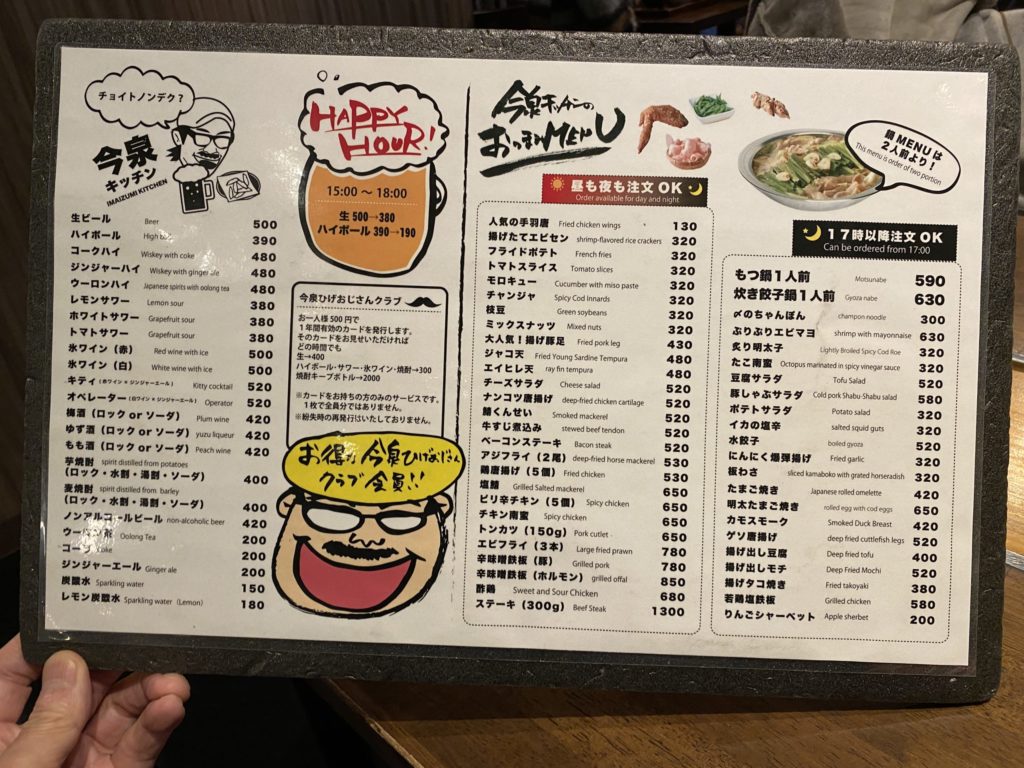 チョイトノンデク？
今泉
キッチン
IMAIZUMI KITCHEN
生ビール Beer 500
ハイボール High ball 390
コークハイ Wiskey with coke 480
ジンジャーハイ Wiskey with ginger ale 480
ウーロンハイ Japanese spirits with oolong tea 480
レモンサワー Lemon sour 380
ホワイトサワー Grapefruit sour 380
トマトサワー Grapefruit sour 380
氷ワイン（赤） Red wine with ice 500
氷ワイン（白） White wine with ice 500
キティ（赤ワイン×ジンジャーエール） Kitty cocktail 520
オペレーター（白ワイン×ジンジャーエール） Operator 520
梅酒（ロック or ソーダ） Plum wine 420
ゆず酒（ロック or ソーダ） yuzu liqueur 420
もも酒（ロック or ソーダ） Peach wine 420
芋焼酎 spirit distilled from potatoes
（ロック・水割・湯割・ソーダ） 400
麦焼酎 spirit distilled from barley
（ロック・水割・湯割・ソーダ） 400
ノンアルコールビール non-alcoholic beer 420
ウーロン茶 Oolong Tea 200
コーラ Coke 200
ジンジャーエール Ginger ale 200
炭酸水 Sparkling water 150
レモン炭酸水 Sparkling water（Lemon） 180
HAPPY
HOUR!
15:00 〜 18:00
生 500→380
ハイボール 390→190
今泉ひげおじさんクラブ
お一人様 500 円で
１年間有効のカードを発行します。
そのカードをお見せいただければ
どの時間でも
生→400
ハイボール・サワー・氷ワイン・焼酎→300
焼酎キープボトル→2000
※カードをお持ちの方のみのサービスです。
１枚で全員分ではありません。
※紛失時の再発行はいたしておりません。
お得な 今泉ひげおじさん
クラブ会員!!
今泉キッチンの
おつまみMENU
昼も夜も注文 OK
Order available for day and night
人気の手羽唐 Fried chicken wings 130
揚げたてエビセン shrimp-flavored rice crackers 320
フライドポテト French fries 320
トマトスライス Tomato slices 320
モロキュー Cucumber with miso paste 320
チャンジャ Spicy Cod Innards 320
枝豆 Green soybeans 320
ミックスナッツ Mixed nuts 320
大人気！揚げ豚足 Fried pork leg 430
ジャコ天 Fried Young Sardine Tempura 480
エイヒレ天 ray fin tempura 480
チーズサラダ Cheese salad 520
ナンコツ唐揚げ deep-fried chicken cartilage 520
鯖くんせい Smoked mackerel 520
牛すじ煮込み stewed beef tendon 520
ベーコンステーキ Bacon steak 520
アジフライ（２尾） deep-fried horse mackerel 530
鶏唐揚げ（５個） Fried chicken 530
塩鯖 Grilled Salted mackerel 650
ピリ辛チキン（５個） Spicy chicken 650
チキン南蛮 Spicy chicken 650
トンカツ（150g） Pork cutlet 650
エビフライ（３本） Large fried prawn 780
辛味噌鉄板（豚） Grilled pork 780
辛味噌鉄板（ホルモン） grilled offal 850
酢鶏 Sweet and Sour Chicken 680
ステーキ（300g） Beef Steak 1300
鍋 MENU は
２人前より！
This menu is order of two portion
１７時以降注文 OK
Can be ordered from 17:00
もつ鍋１人前 Motsunabe 590
炊き餃子鍋１人前 Gyoza nabe 630
〆のちゃんぽん champon noodle 300
ぷりぷりエビマヨ shrimp with mayonnaise 630
炙り明太子 Lightly Broiled Spicy Cod Roe 320
たこ南蛮 Octopus marinated in spicy vinegar sauce 320
豆腐サラダ Tofu Salad 520
豚しゃぶサラダ Cold pork Shabu-Shabu salad 580
ポテトサラダ Potato salad 320
イカの塩辛 salted squid guts 320
水餃子 boiled gyoza 520
にんにく爆弾揚げ Fried garlic 320
板わさ sliced kamaboko with grated horseradish 320
たまご焼き Japanese rolled omelette 420
明太たまご焼き rolled egg with cod eggs 650
カモスモーク Smoked Duck Breast 420
ゲソ唐揚げ deep fried cuttlefish legs 520
揚げ出し豆腐 Deep fried tofu 400
揚げ出しモチ Deep Fried Mochi 520
揚げタコ焼き Fried takoyaki 380
若鶏塩鉄板 Grilled chicken 580
りんごシャーベット Apple sherbet 200